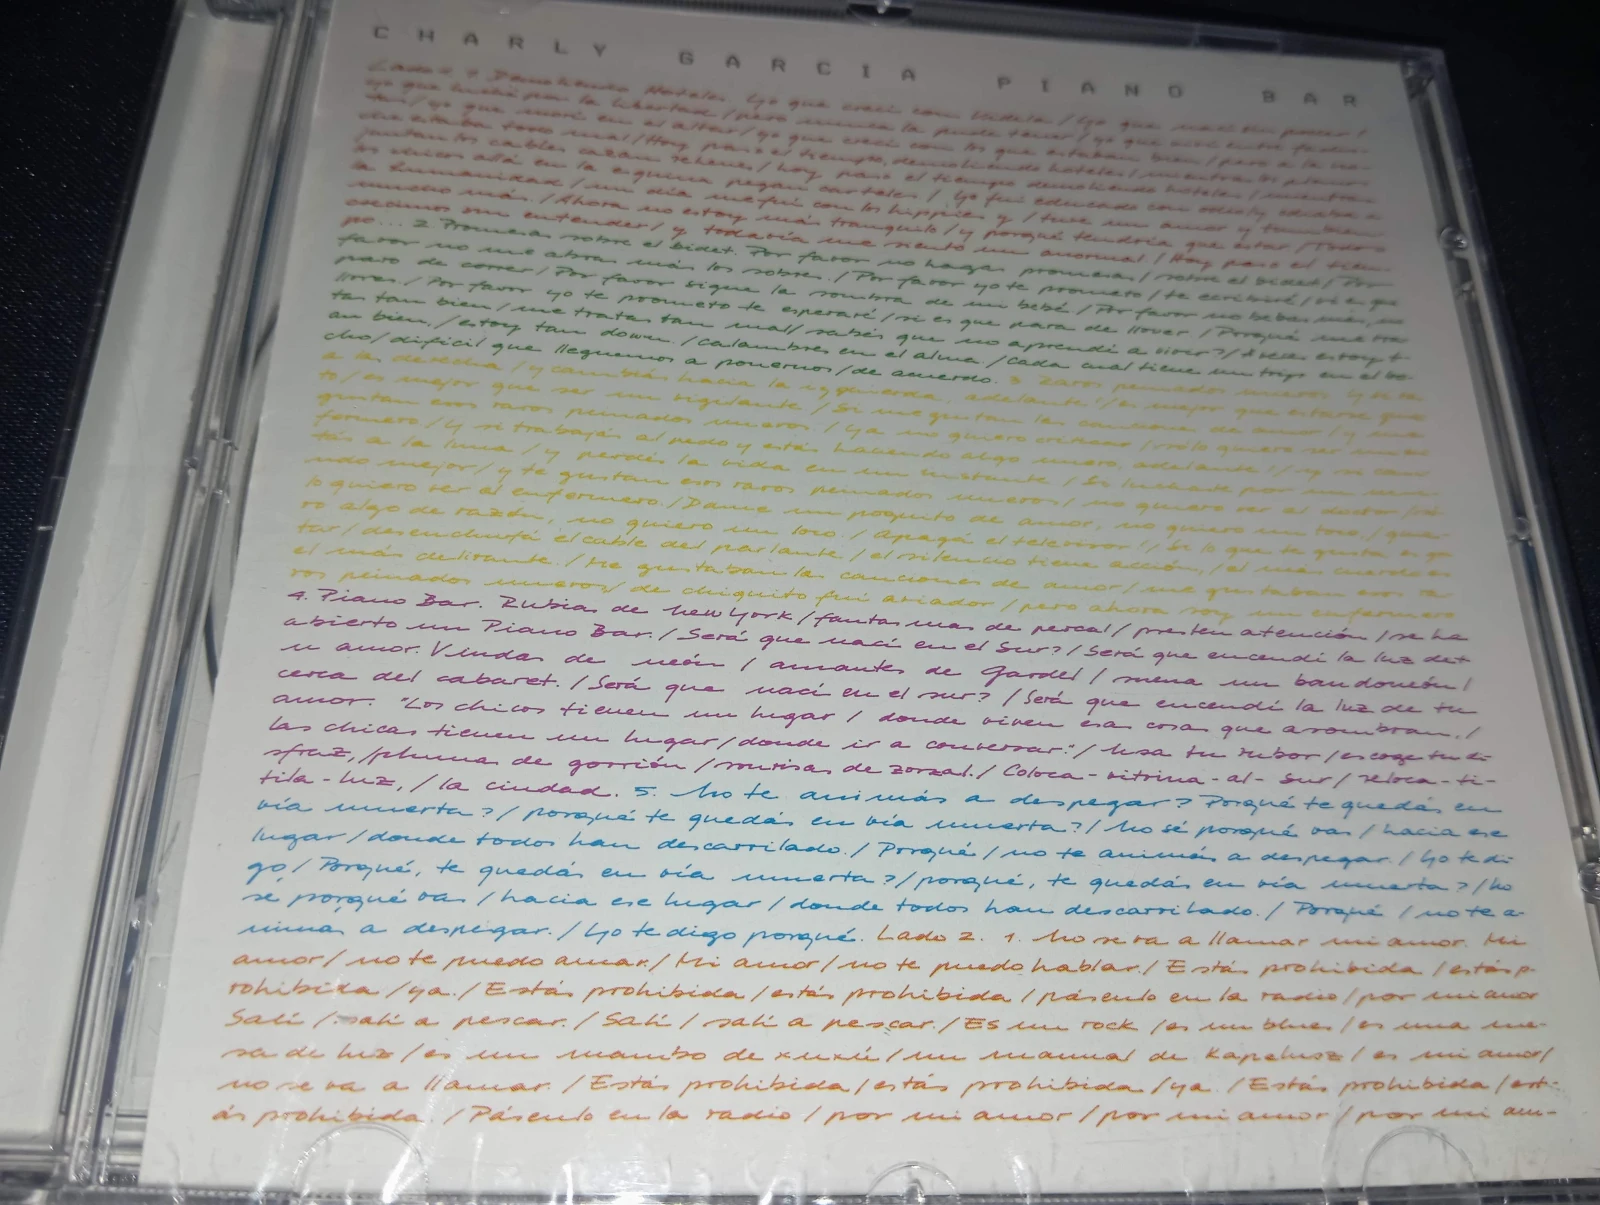 CHARLY GARCIA PIANO BAR
Lado 1. 1 Demoliendo Hoteles. Yo que crecí con Videla / yo que nací sin poder /
yo que luché por la libertad / pero nunca la pude tener / yo que viví entre fachis-
tas / yo que morí en el altar / yo que crecí con los que estaban bien / pero a la no-
che estaba todo mal / Hoy paso el tiempo, demoliendo hoteles / mientras los planos
juntan los cables cazan rehenes / hoy paso el tiempo demoliendo hoteles / mientras
los chicos allá en la esquina pegan carteles / Yo fui educado con odio / y odiaba a
la humanidad / un día me fui con los hippies y / tuve un amor y también
mucho más. / Ahora no estoy más tranquilo / y porqué tendría que estar / Todos
crecimos sin entender / y todavía me siento un anormal / Hoy paso el tiem-
po... 2 Promesas sobre el bidet. Por favor no hagas promesas / sobre el bidet / Por
favor no me abras más los sobres. / Por favor yo te prometo / te escribiré / si es que
paro de correr / Por favor sigue la sombra de un bebé / Por favor no bebas más, no
llores. / Por favor yo te prometo te esperaré / si es que para de llover / Porqué me tra-
tas tan bien / me tratas tan mal / sabés que no aprendí a vivir? / A veces estoy t-
an bien, / estoy tan down, / calambres en el alma / cada cual tiene un trip en el bo-
cho / difícil que lleguemos a ponernos / de acuerdo. 3 Raros peinados nuevos Y si va-
a la derecha / y cambiás hacia la izquierda, adelante! / es mejor que estarse quie-
to / es mejor que ser un vigilante / Si me gustan las canciones de amor / y me
gustan esos raros peinados nuevos. / Ya no quiero criticar / sólo quiero ser un en-
fermero. / Y si trabajás al pedo y estás haciendo algo nuevo, adelante! / y si can-
tás a la luna / y perdés la vida en un instante / Si luchaste por un mun-
do mejor / y te gustan esos raros peinados nuevos / no quiero ver al doctor / só-
lo quiero ver al enfermero. / Dame un poquito de amor, no quiero un toco. / quie-
ro algo de razón, no quiero un loco. / Apagá el televisor! / Si lo que te gusta es gri-
tar / desenchufá el cable del parlante / el silencio tiene acción, / el más cuerdo es
el más delirante. / Me gustaban las canciones de amor / me gustaban esos ra-
ros peinados nuevos / de chiquito fui aviador / pero ahora soy un enfermero
4. Piano Bar. Rubias de New York / fantasmas de percal / presten atención / se ha
abierto un Piano Bar. / Será que nací en el Sur? / Será que encendí la luz de t-
u amor. Viudas de neón / amantes de Gardel / suena un bandoneón /
cerca del cabaret. / Será que nací en el sur? / Será que encendí la luz de tu
amor. "Los chicos tienen un lugar / donde viven esa cosa que asombran, /
las chicas tienen un lugar / donde ir a conversar." / Usa tu rubor / escoge tu di-
sfraz, / pluma de gorrión / sonrisas de zorzal. / Coloca - vitrina - al - Sur / reloca - ti-
tila - luz, / la ciudad. 5. No te animás a despegar? Porqué te quedás en
vía muerta? / porqué te quedás en vía muerta? / No sé porqué vas / hacia ese
lugar / donde todos han descarrilado. / Porqué / no te animás a despegar. / Yo te di-
go / Porqué, te quedás en vía muerta? / porqué, te quedás en vía muerta? / No
sé porqué vas / hacia ese lugar / donde todos han descarrilado. / Porqué / no te a-
nimas a despegar. / Yo te digo porqué. Lado 2. 1. No se va a llamar mi amor. Mi
amor / no te puedo amar. / Mi amor / no te puedo hablar. / Estás prohibida / estás p-
rohibida / ya. / Estás prohibida / estás prohibida / pásenlo en la radio / por mi amor
Salí / salí a pescar. / Salí / salí a pescar. / Es un rock / es un blues / es una me-
sa de luz / es un mambo de xuxú / un manual de Kapelusz / es mi amor /
no se va a llamar. / Estás prohibida / estás prohibida / ya. / Estás prohibida / est-
ás prohibida. / Pásenlo en la radio / por mi amor / por mi amor / por mi am-